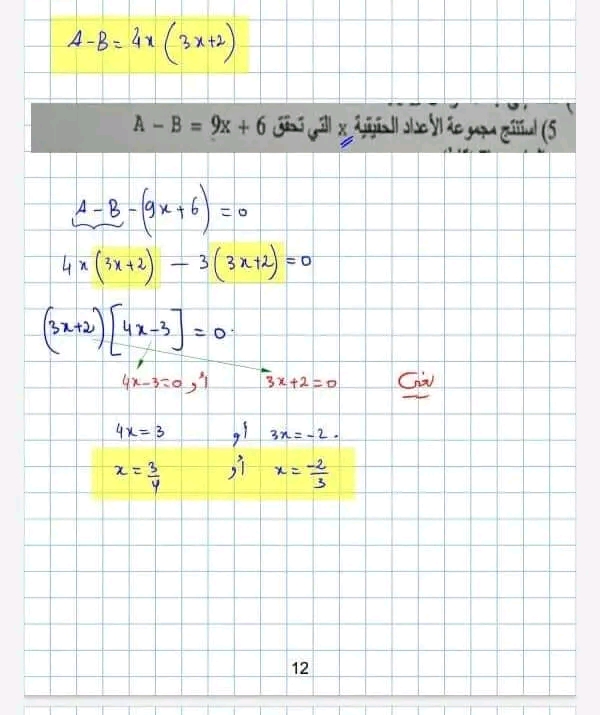 A-B = 4x (3x+2)
5) استنتج مجموعة الأعداد الحقيقية x التي تحقق A - B = 9x + 6
A-B-(9x+6) = 0
4x(3x+2) - 3(3x+2) = 0
(3x+2)[4x-3] = 0.
3x+2=0 أو 4x-3=0
3x=-2. أو 4x=3
x=-2/3 أو x=3/4
12